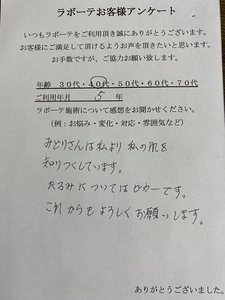 ラポーテお客様アンケート
いつもラポーテをご利用頂き誠にありがとうございます。
お客様にご満足して頂けるようお声を頂きたいと思います。
お手数ですが、ご協力お願い致します。
年齢 30代・40代・50代・60代・70代
ご利用年月 5 年
ラポーテ施術について感想をお聞かせください。
(例:お悩み・変化・対応・雰囲気など)
みどりさんは私より私の肌を
知りつくしています。
たるみについてはピカ一です。
これからもよろしくお願いします。
ありがとうございました。